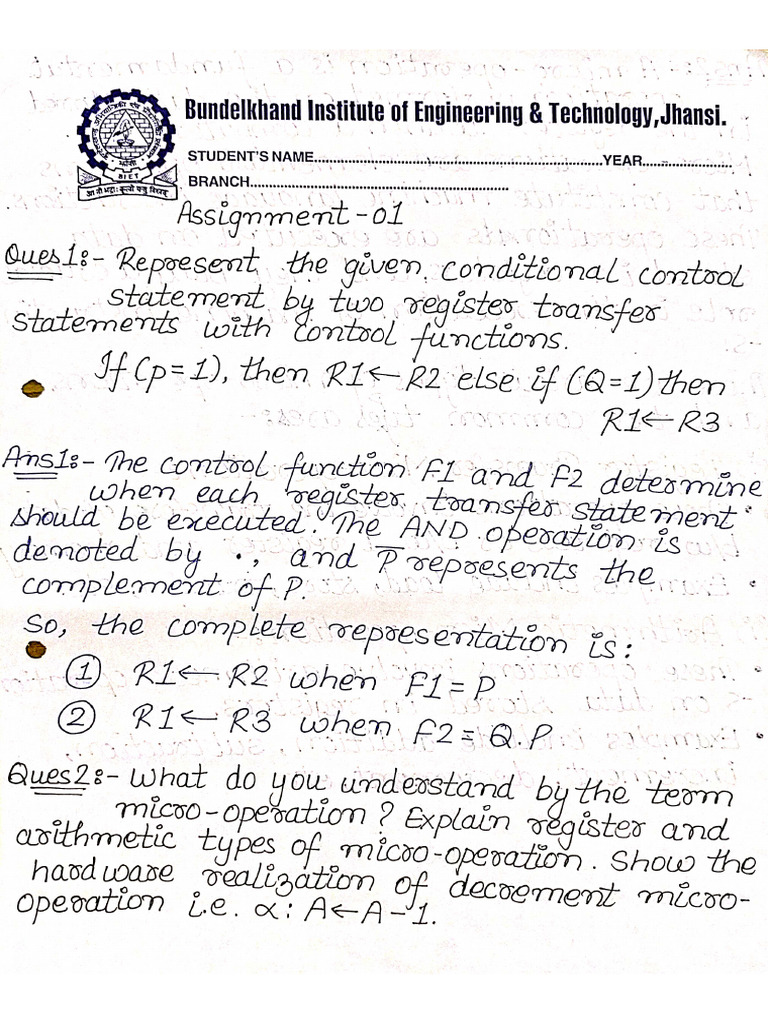 Bundelkhand Institute of Engineering & Technology,Jhansi.
STUDENT'S NAME............................................................................YEAR........................
BRANCH....................................................................
BIET
Assignment-01
Ques1:- Represent the given conditional control
statement by two register transfer
statements with control functions.
If (p=1), then R1 ← R2 else if (Q=1) then
R1 ← R3
Ans1:- The control function F1 and F2 determine
when each register transfer statement
should be executed. The AND operation is
denoted by ·, and P̅ represents the
complement of P.
So, the complete representation is:
① R1 ← R2 when F1 = P
② R1 ← R3 when F2 = Q.P
Ques2:- What do you understand by the term
micro-operation? Explain register and
arithmetic types of micro-operation. Show the
hardware realization of decrement micro-
operation i.e. α: A ← A - 1.